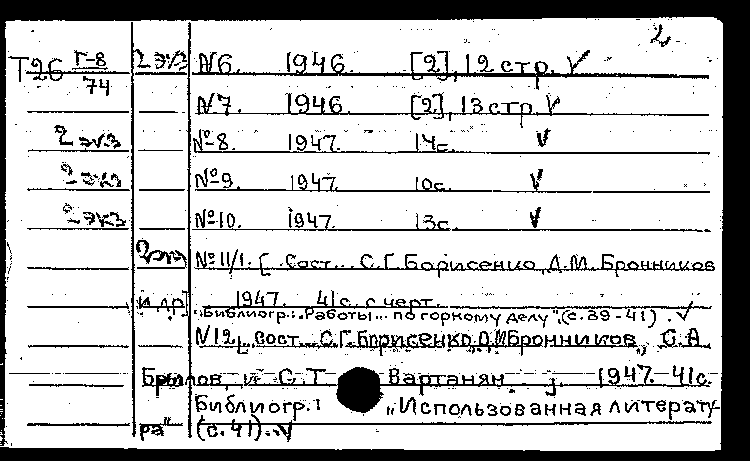 2
Т26 Г-8/74 2 экз №6. 1946. [2], 12 стр. V
№7. 1946. [2], 13 стр. V
2 экз №8. 1947. 14с. V
2 экз №9. 1947. 10с. V
2 экз №10. 1947. 13с. V
2 экз №11/1. [ Сост... С.Г. Борисенко, Д.М. Бронников
и др] 1947. 41с. с черт.
"Библиогр.: Работы... по горному делу" (с. 39-41). V
№12[, Сост... С.Г. Борисенко, Д.М Бронников, С.А.
Брылов, и С.Т Вартанян. ]. 1947. 41с.
Библиогр.: „Использованная литерату-
ра" (с. 41). V